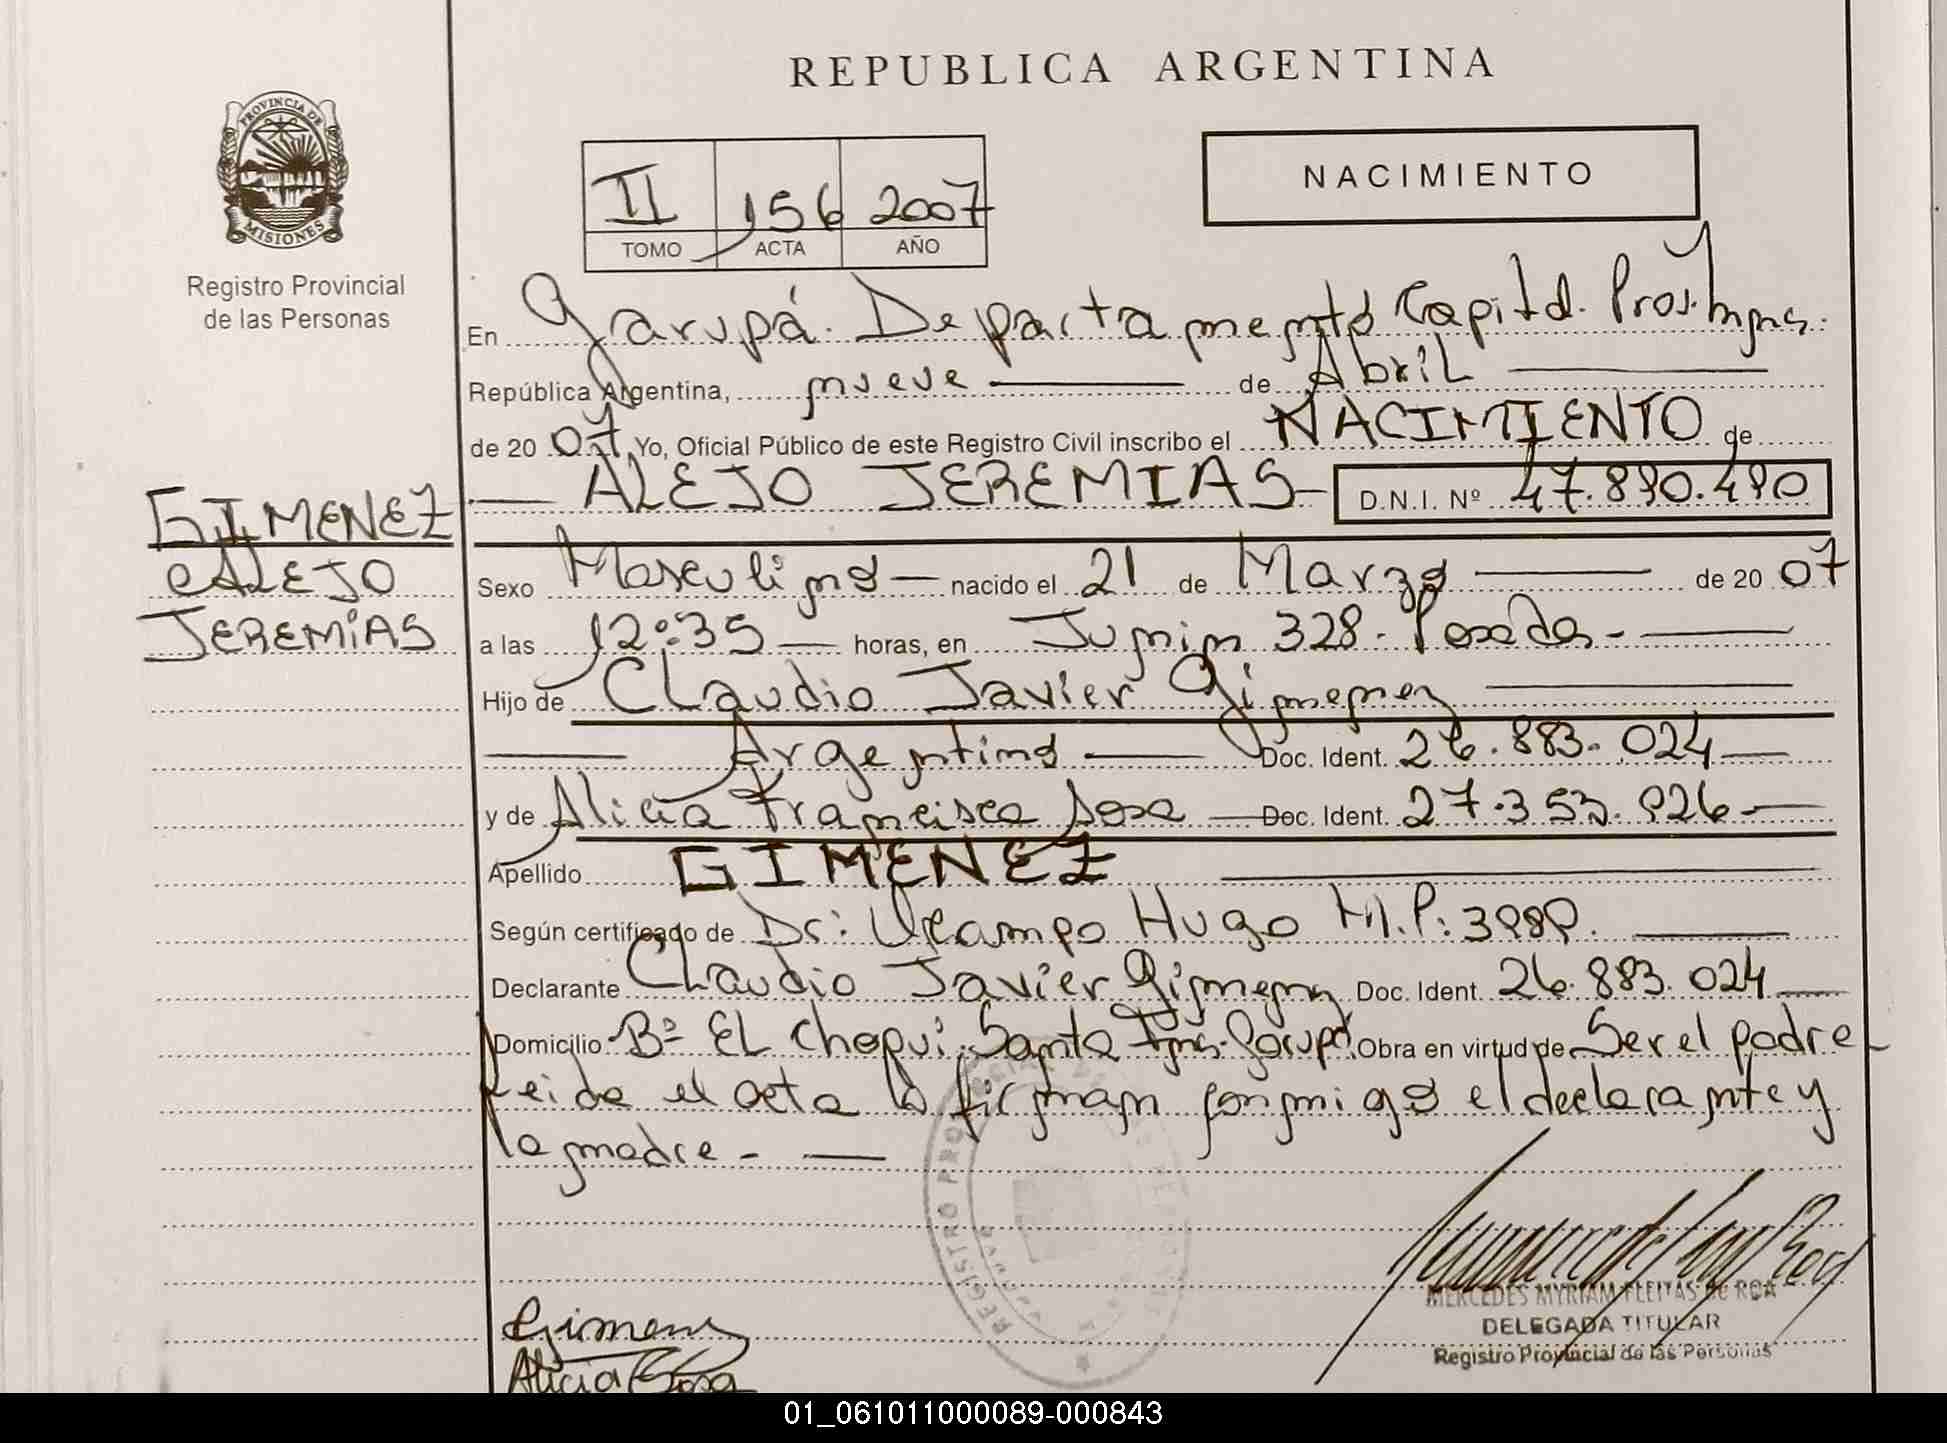 REPUBLICA ARGENTINA
PROVINCIA DE
MISIONES
Registro Provincial
de las Personas
II 156 2007
TOMO ACTA AÑO
NACIMIENTO
En Garupá. Departamento Capital. Prov. Mnes.
República Argentina, nueve de Abril
de 20 07 Yo, Oficial Público de este Registro Civil inscribo el NACIMIENTO de
ALEJO JEREMIAS D.N.I. Nº 47.890.490
GIMENEZ
ALEJO
JEREMIAS
Sexo Masculino nacido el 21 de Marzo de 20 07
a las 12:35 horas, en Junin 328. Posadas.
Hijo de Claudio Javier Gimenez
Argentino Doc. Ident. 26.883.024
y de Alicia Francisca Sosa Doc. Ident. 27.353.926
Apellido GIMENEZ
Según certificado de Dr: Ocampo Hugo M.P:
Declarante Claudio Javier Gimenez Doc. Ident. 26.883.024
Domicilio Bº El Santa Garupá. Obra en virtud de Ser el padre
Leida el acta la firman conmigo el declarante y
la madre.
REGISTRO
Gimenez
Alicia Sosa
MERCEDES MYRIAM FLEITAS de ROA
DELEGADA TITULAR
Registro Provincial de las Personas
01_061011000089-000843